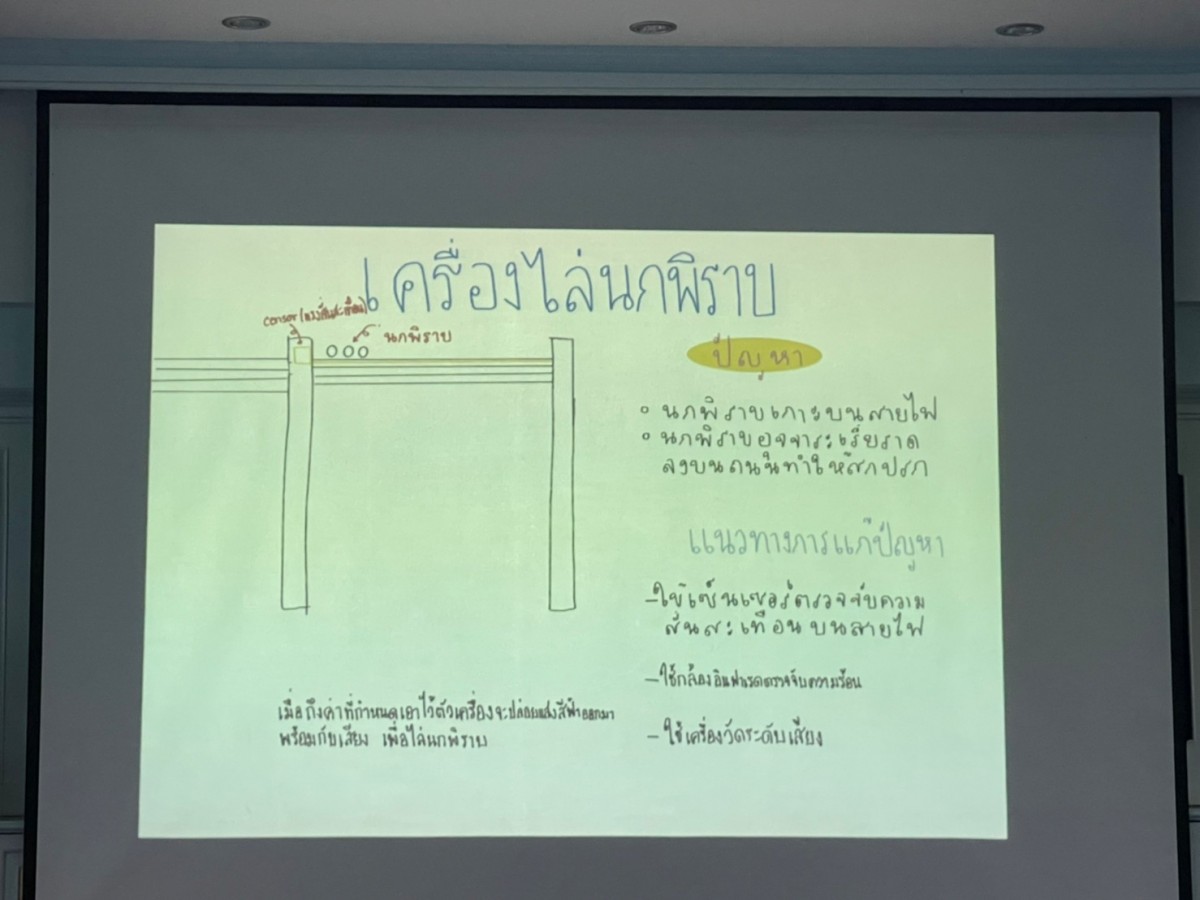 เครื่องไล่นกพิราบ
censor (แรงสั่นสะเทือน)
นกพิราบ
ปัญหา
นกพิราบเกาะบนสายไฟ
นกพิราบอุจจาระเรี่ยราด
ลงบนถนนทำให้สกปรก
แนวทางการแก้ปัญหา
-ใช้เซ็นเซอร์ตรวจจับความ
สั่นสะเทือนบนสายไฟ
-ใช้กล้องอินฟาเรดตรวจจับความร้อน
-ใช้เครื่องวัดระดับเสียง
เมื่อถึงค่าที่กำหนดเอาไว้ตัวเครื่องจะปล่อยแสงสีฟ้าออกมา
พร้อมกับเสียง เพื่อไล่นกพิราบ